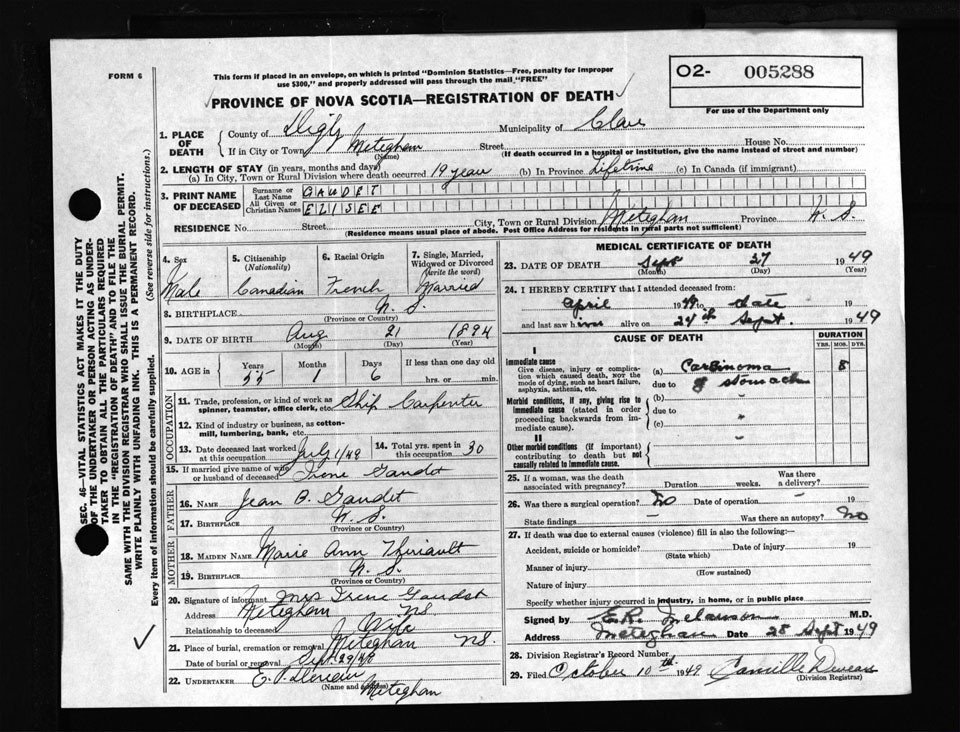 FORM 6
This form if placed in an envelope, on which is printed "Dominion Statistics—Free, penalty for improper
use $300," and properly addressed will pass through the mail "FREE"
O2- 005288
For use of the Department only
PROVINCE OF NOVA SCOTIA—REGISTRATION OF DEATH
1. PLACE OF DEATH
County of Digby Municipality of Clare
If in City or Town Meteghan Street House No.
(Name) (If death occurred in a hospital or institution, give the name instead of street and number)
2. LENGTH OF STAY (in years, months and days)
(a) In City, Town or Rural Division where death occurred 19 years (b) In Province Lifetime (c) In Canada (if immigrant)
3. PRINT NAME OF DECEASED
Surname or Last Name GAUDET
All Given or Christian Names ELISEE
RESIDENCE No. Street City, Town or Rural Division Meteghan Province N. S.
(Residence means usual place of abode. Post Office Address for residents in rural parts not sufficient)
4. Sex Male
5. Citizenship (Nationality) Canadian
6. Racial Origin French
7. Single, Married, Widowed or Divorced (write the word) Married
8. BIRTHPLACE N. S.
(Province or Country)
9. DATE OF BIRTH Aug 21 1894
(Month) (Day) (Year)
10. AGE in Years Months Days If less than one day old
55 1 6 hrs. or min.
OCCUPATION
11. Trade, profession, or kind of work as
spinner, teamster, office clerk, etc. Ship Carpenter
12. Kind of industry or business, as cotton-
mill, lumbering, bank, etc.
13. Date deceased last worked at this occupation July 1/49
14. Total yrs. spent in this occupation 30
15. If married give name of wife or husband of deceased Irene Gaudet
FATHER
16. NAME Jean B. Gaudet
17. BIRTHPLACE N. S.
(Province or Country)
MOTHER
18. MAIDEN NAME Marie Ann Thiriault
19. BIRTHPLACE N. S.
(Province or Country)
20. Signature of informant Mrs Irene Gaudet
Address Meteghan N.S.
Relationship to deceased Wife
21. Place of burial, cremation or removal Meteghan N.S.
Date of burial or removal Sept 29/49
22. UNDERTAKER E. P.
(Name and address) Meteghan
MEDICAL CERTIFICATE OF DEATH
23. DATE OF DEATH Sept 27 1949
(Month) (Day) (Year)
24. I HEREBY CERTIFY that I attended deceased from:
April 1949 to date 19
and last saw h alive on 24th Sept. 1949
CAUSE OF DEATH
DURATION
YRS. MOS. DYS.
I
Immediate cause
Give disease, injury or complica-
tion which caused death, not the
mode of dying, such as heart failure,
asphyxia, asthenia, etc.
(a) Carcinoma 8
due to of stomach
Morbid conditions, if any, giving rise to
immediate cause (stated in order
proceeding backwards from im-
mediate cause).
(b)
due to
(c)
II
Other morbid conditions (if important)
contributing to death but not
causally related to immediate cause.
25. If a woman, was the death
associated with pregnancy? Duration weeks. Was there a delivery?
26. Was there a surgical operation? No Date of operation 19
State findings Was there an autopsy? No
27. If death was due to external causes (violence) fill in also the following:—
Accident, suicide or homicide? Date of injury 19
(State which)
Manner of injury
(How sustained)
Nature of injury
Specify whether injury occurred in industry, in home, or in public place
Signed by E.R. Melanson M.D.
Address Meteghan Date 28 Sept 1949
28. Division Registrar's Record Number
29. Filed October 10th 1949 Camille
(Division Registrar)
SEC. 46—VITAL STATISTICS ACT MAKES IT THE DUTY
OF THE UNDERTAKER OR PERSON ACTING AS UNDER-
TAKER TO OBTAIN ALL THE PARTICULARS REQUIRED
IN THE "REGISTRATION OF DEATH" AND TO FILE THE
SAME WITH THE DIVISION REGISTRAR WHO SHALL ISSUE THE BURIAL PERMIT.
WRITE PLAINLY WITH UNFADING INK. THIS IS A PERMANENT RECORD.
Every item of information should be carefully supplied. (See reverse side for instructions.)